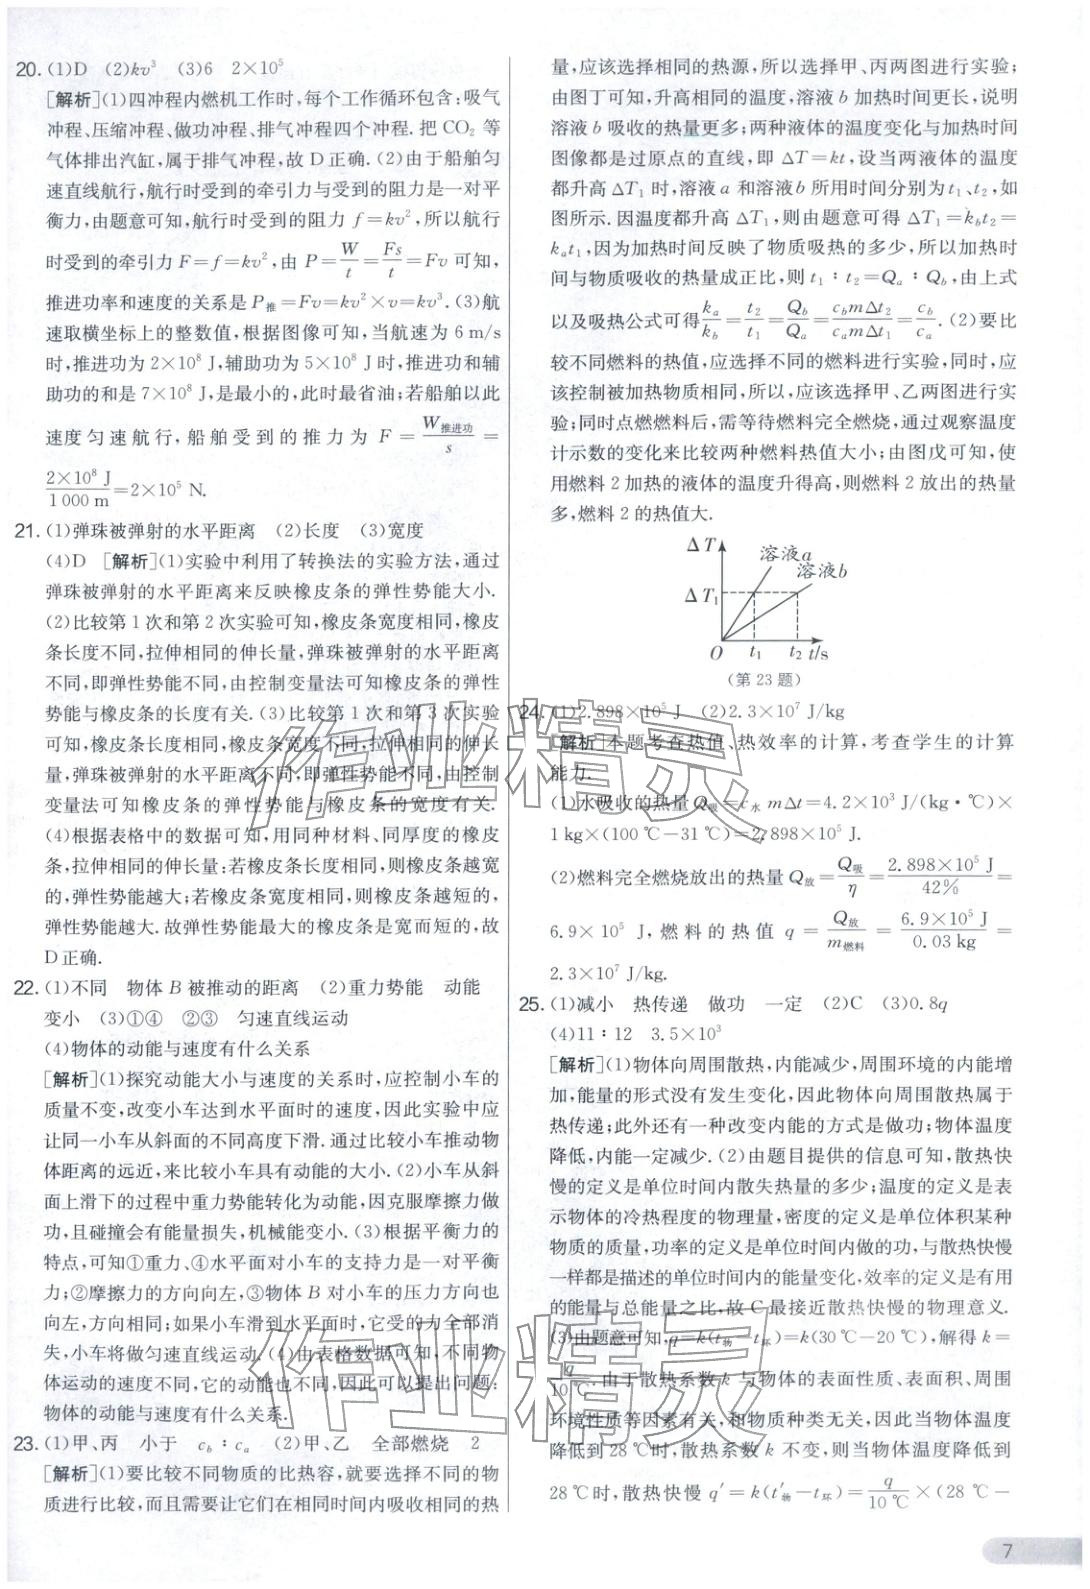 20. (1)D (2)kv³ (3)6 2×10⁵
[解析](1)四冲程内燃机工作时,每个工作循环包含:吸气
冲程、压缩冲程、做功冲程、排气冲程四个冲程.把 CO₂ 等
气体排出汽缸,属于排气冲程,故 D 正确.(2)由于船舶匀
速直线航行,航行时受到的牵引力与受到的阻力是一对平
衡力,由题意可知,航行时受到的阻力 f=kv²,所以航行
时受到的牵引力 F=f=kv²,由 P=W/t=Fs/t=Fv 可知,
推进功率和速度的关系是 P推=Fv=kv²×v=kv³.(3)航
速取横坐标上的整数值,根据图像可知,当航速为 6 m/s
时,推进功为 2×10⁸ J,辅助功为 5×10⁸ J 时,推进功和辅
助功的和是 7×10⁸ J,是最小的,此时最省油;若船舶以此
速度匀速航行,船舶受到的推力为 F=W推进功/s=
2×10⁸ J/1 000 m=2×10⁵ N.
21. (1)弹珠被弹射的水平距离 (2)长度 (3)宽度
(4)D [解析](1)实验中利用了转换法的实验方法,通过
弹珠被弹射的水平距离来反映橡皮条的弹性势能大小.
(2)比较第 1 次和第 2 次实验可知,橡皮条宽度相同,橡皮
条长度不同,拉伸相同的伸长量,弹珠被弹射的水平距离
不同,即弹性势能不同,由控制变量法可知橡皮条的弹性
势能与橡皮条的长度有关.(3)比较第 1 次和第 3 次实验
可知,橡皮条长度相同,橡皮条宽度不同,拉伸相同的伸长
量,弹珠被弹射的水平距离不同,即弹性势能不同,由控制
变量法可知橡皮条的弹性势能与橡皮条的宽度有关.
(4)根据表格中的数据可知,用同种材料、同厚度的橡皮
条,拉伸相同的伸长量:若橡皮条长度相同,则橡皮条越宽
的,弹性势能越大;若橡皮条宽度相同,则橡皮条越短的,
弹性势能越大.故弹性势能最大的橡皮条是宽而短的,故
D 正确.
22. (1)不同 物体 B 被推动的距离 (2)重力势能 动能
变小 (3)①④ ②③ 匀速直线运动
(4)物体的动能与速度有什么关系
[解析](1)探究动能大小与速度的关系时,应控制小车的
质量不变,改变小车达到水平面时的速度,因此实验中应
让同一小车从斜面的不同高度下滑.通过比较小车推动物
体距离的远近,来比较小车具有动能的大小.(2)小车从斜
面上滑下的过程中重力势能转化为动能,因克服摩擦力做
功,且碰撞会有能量损失,机械能变小.(3)根据平衡力的
特点,可知①重力、④水平面对小车的支持力是一对平衡
力;②摩擦力的方向向左,③物体 B 对小车的压力方向也
向左,方向相同;如果小车滑到水平面时,它受的力全部消
失,小车将做匀速直线运动.(4)由表格数据可知,不同物
体运动的速度不同,它的动能也不同,因此可以提出问题:
物体的动能与速度有什么关系.
23. (1)甲、丙 小于 c_b∶c_a (2)甲、乙 全部燃烧 2
[解析](1)要比较不同物质的比热容,就要选择不同的物
质进行比较,而且需要让它们在相同时间内吸收相同的热
量,应该选择相同的热源,所以选择甲、丙两图进行实验;
由图丁可知,升高相同的温度,溶液 b 加热时间更长,说明
溶液 b 吸收的热量更多;两种液体的温度变化与加热时间
图像都是过原点的直线,即 ΔT=kt,设当两液体的温度
都升高 ΔT₁ 时,溶液 a 和溶液 b 所用时间分别为 t₁、t₂,如
图所示.因温度都升高 ΔT₁,则由题意可得 ΔT₁=k_bt₂=
k_at₁,因为加热时间反映了物质吸热的多少,所以加热时
间与物质吸收的热量成正比,则 t₁∶t₂=Q_a∶Q_b,由上式
以及吸热公式可得k_a/k_b=t₂/t₁=Q_b/Q_a=c_bmΔt₂/c_amΔt₁=c_b/c_a.(2)要比
较不同燃料的热值,应选择不同的燃料进行实验,同时,应
该控制被加热物质相同,所以,应该选择甲、乙两图进行实
验;同时点燃燃料后,需等待燃料完全燃烧,通过观察温度
计示数的变化来比较两种燃料热值大小;由图戊可知,使
用燃料 2 加热的液体的温度升得高,则燃料 2 放出的热量
多,燃料 2 的热值大.
ΔT 溶液a
溶液b
ΔT₁
O t₁ t₂ t/s
(第 23 题)
24. (1)2.898×10⁵ J (2)2.3×10⁷ J/kg
[解析]本题考查热值、热效率的计算,考查学生的计算
能力.
(1)水吸收的热量 Q吸=c水mΔt=4.2×10³ J/(kg·℃)×
1 kg×(100 ℃−31 ℃)=2.898×10⁵ J.
(2)燃料完全燃烧放出的热量 Q放=Q吸/η=2.898×10⁵ J/42%=
6.9×10⁵ J,燃料的热值 q=Q放/m燃料=6.9×10⁵ J/0.03 kg=
2.3×10⁷ J/kg.
25. (1)减小 热传递 做功 一定 (2)C (3)0.8q
(4)11∶12 3.5×10³
[解析](1)物体向周围散热,内能减少,周围环境的内能增
加,能量的形式没有发生变化,因此物体向周围散热属于
热传递;此外还有一种改变内能的方式是做功;物体温度
降低,内能一定减少.(2)由题目提供的信息可知,散热快
慢的定义是单位时间内散失热量的多少;温度的定义是表
示物体的冷热程度的物理量,密度的定义是单位体积某种
物质的质量,功率的定义是单位时间内做的功,与散热快慢
一样都是描述的单位时间内的能量变化,效率的定义是有用
的能量与总能量之比,故 C 最接近散热快慢的物理意义.
(3)由题意可知,q=k(t物−t环)=k(30 ℃−20 ℃),解得 k=
q/10 ℃.由于散热系数 k 与物体的表面性质、表面积、周围
环境性质等因素有关,和物质种类无关,因此当物体温度
降低到 28 ℃时,散热系数 k 不变,则当物体温度降低到
28 ℃时,散热快慢 q′=k(t′物−t环)=q/10 ℃×(28 ℃−
作业精灵
作业精灵
7